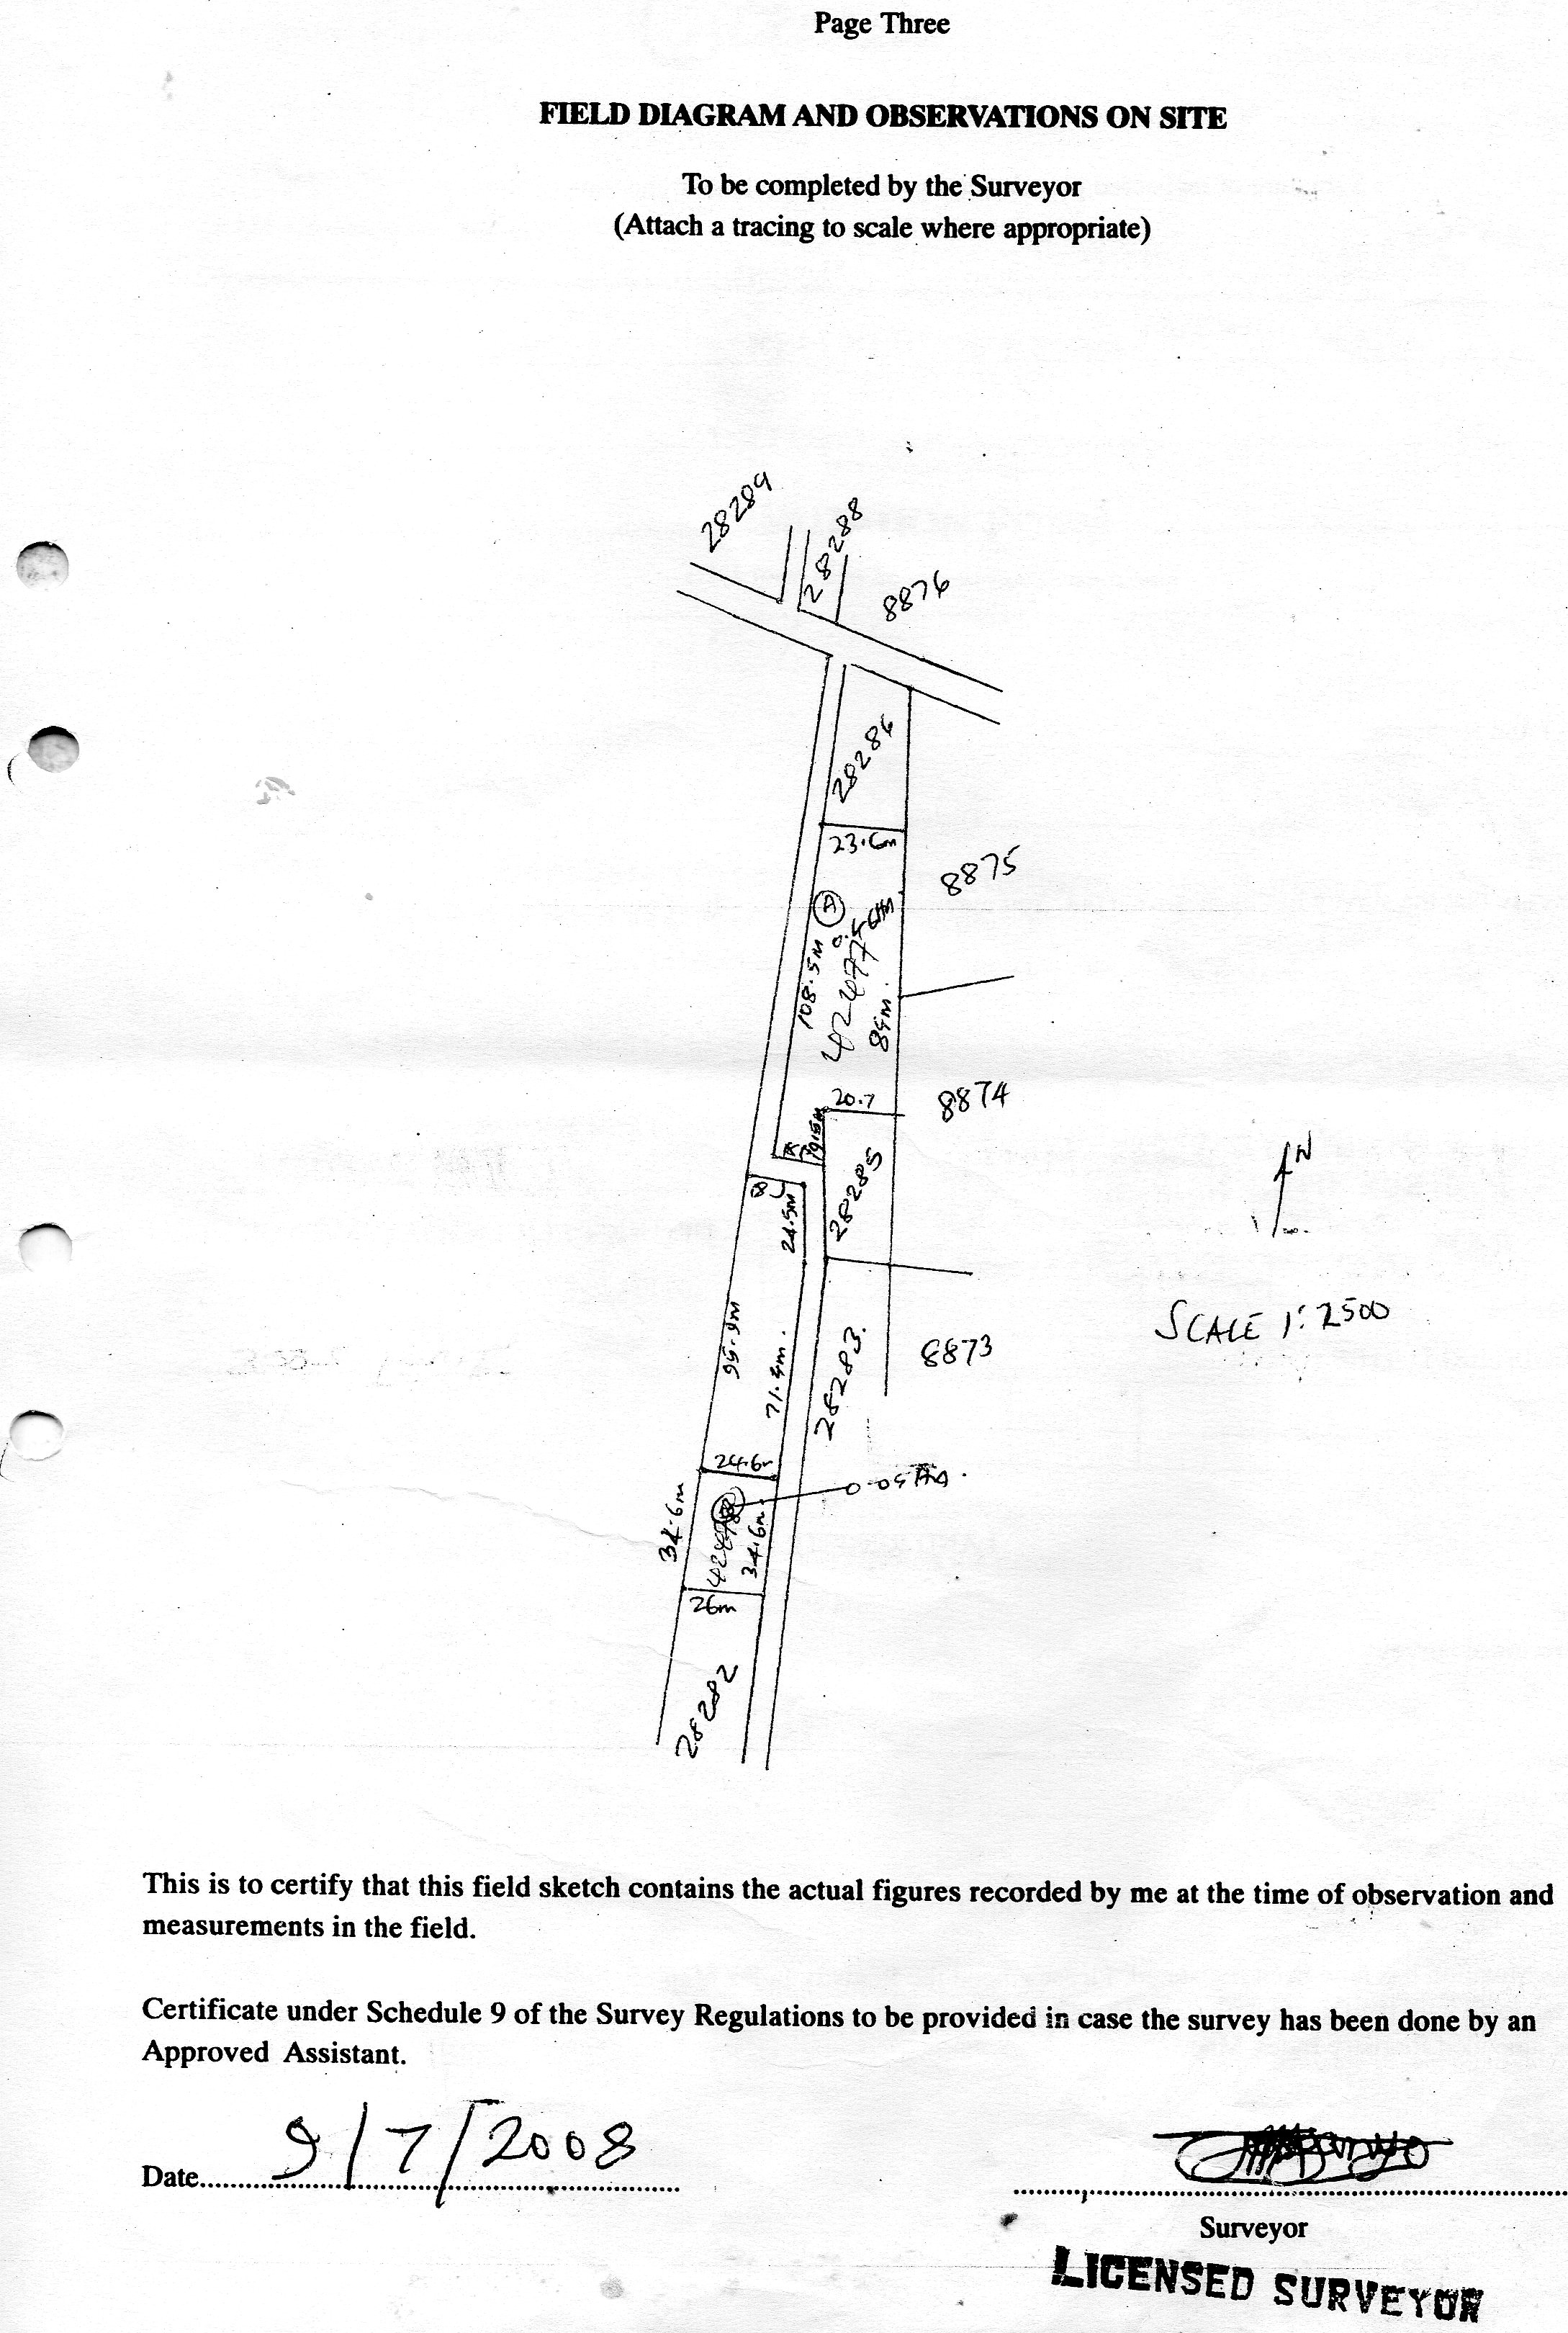 Page Three
FIELD DIAGRAM AND OBSERVATIONS ON SITE
To be completed by the Surveyor
(Attach a tracing to scale where appropriate)
28289
28288
8876
28286
23.6m
8875
A
108.5m
89m.
20.7
8874
19.5m
28285
N
B
24.5m
SCALE 1:2500
99.9m
71.4m.
28283.
8873
24.6m
0.09HA.
34.6m
34.6m
26m
28282
This is to certify that this field sketch contains the actual figures recorded by me at the time of observation and
measurements in the field.
Certificate under Schedule 9 of the Survey Regulations to be provided in case the survey has been done by an
Approved Assistant.
Date 9/7/2008
Surveyor
LICENSED SURVEYOR